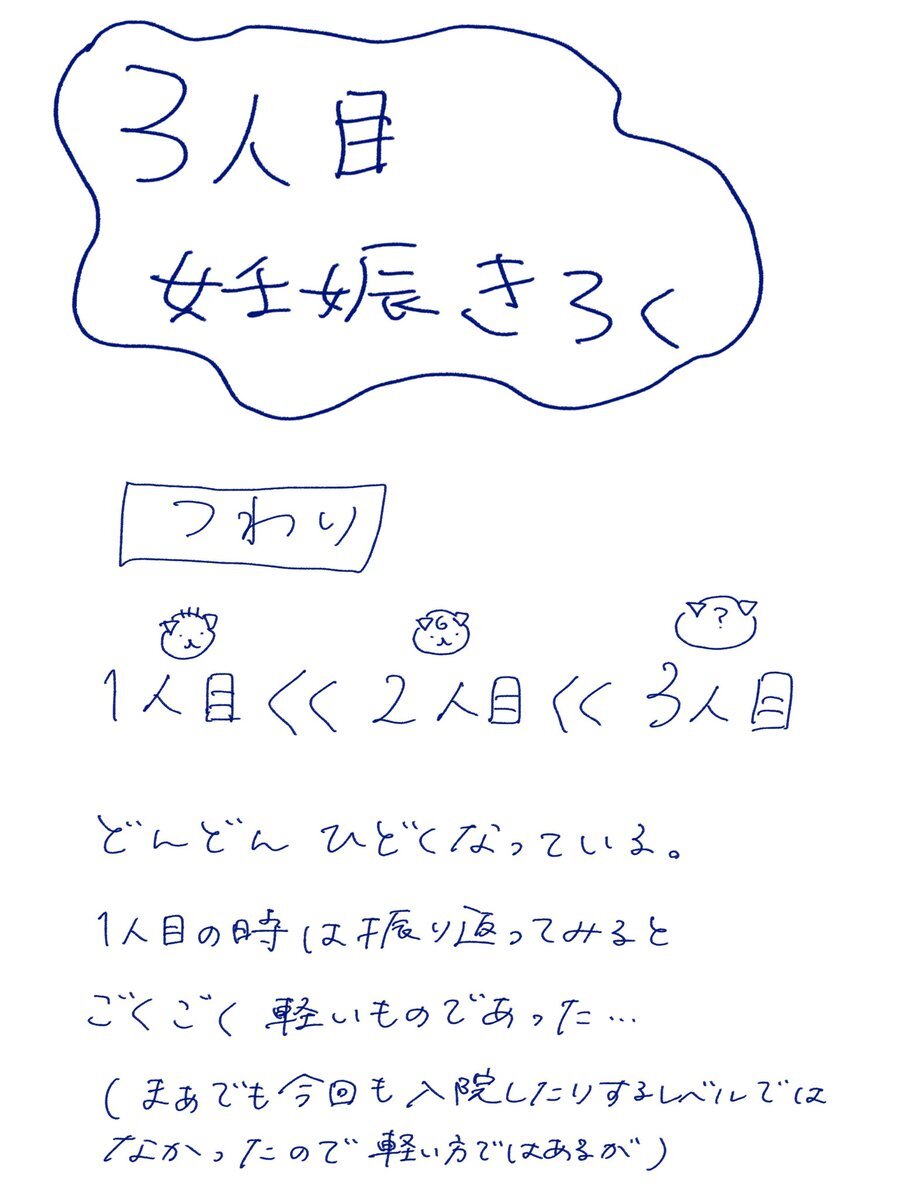 3人目
妊娠きろく
つわり
6 ?
1人目 << 2人目 << 3人目
どんどん ひどくなっている。
1人目の時は振り返ってみると
ごくごく 軽いものであった…
(まあでも今回も入院したりするレベルでは
なかったので 軽い方ではあるが)